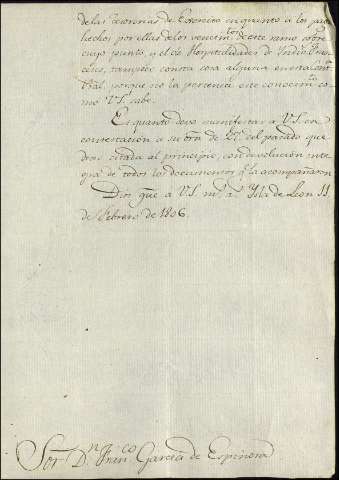 de las Tesorerias de Exercito en quanto a los pagos
hechos por ellas de los vencim.tos de este ramo sobre
cuyo punto, y el de Hospitalidades de
tampoco consta cosa alguna en esta Cont.
pral. porque no la pertenece este conocim.to co-
mo V.S. sabe.
Es quanto devo manifestar a V.S. en
contestacion a su orn. de 27 del pasado que
dexo citada al principio, con devolucion inte-
gra de todos los documentos q.e la acompañaron.
Dios gũe a V.S. m.s a.s Ysla de Leon 11
de Febrero de 1806
Sor. D.n Fran.co Garcia de Espinosa